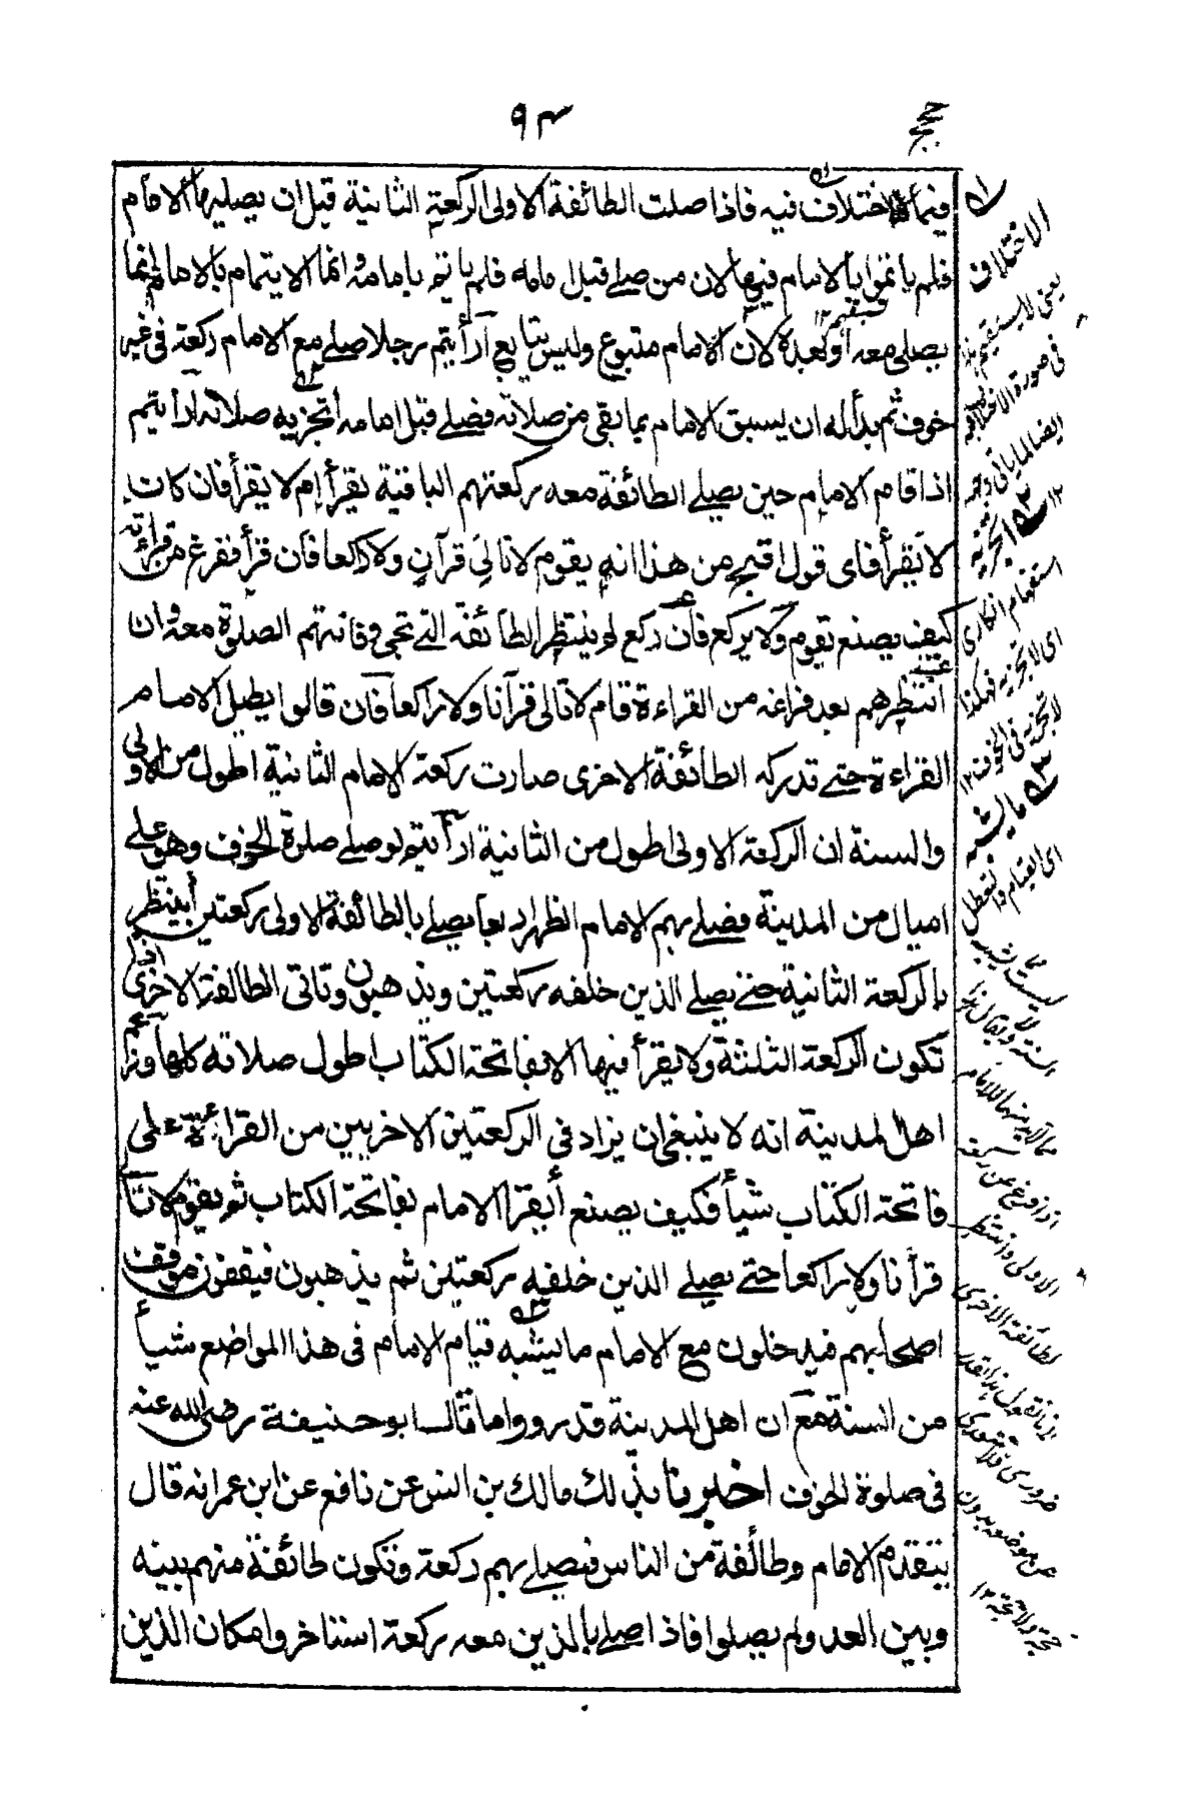 حجج
٩٣
فيما لا اختلاف فيه فاذا صلت الطائفة الاولى الركعة الثانية قبل ان يصليها الامام
فلم يأتموا بالامام فيها لان من صلى قبل امامه فلم يأتم بامامه وانما الايتمام بالامام انما
يصلى معه او بعده لان الامام متبوع وليس بتابع أرأيتم رجلا صلى مع الامام ركعة فى غير
خوف ثم بدأ له ان يسبق الامام بما بقى من صلاته فصلى قبل امامه أتجزيه صلاته أرأيتم
اذا قام الامام حين يصلى الطائفة معه ركعتهم الباقية يقرأ ام لا يقرأ فان كان
لا يقرأ فاى قول اقبح من هذا انه يقوم لا تالى قرآن ولا راكعا فان قرأ ففرغ من قراءته
كيف يصنع يقوم ولا يركع فان ركع لم ينتظر الطائفة التى تجئ وفاتتهم الصلوة معه وان
انتظرهم بعد فراغه من القراءة قام لا تالى قرآنا ولا راكعا فان قالوا يطيل الامام
القراءة حتى تدركه الطائفة الاخرى صارت ركعة الامام الثانية اطول من الاولى
والسنة ان الركعة الاولى اطول من الثانية أرأيتم لو صلى صلوة الخوف وهو على
اميال من المدينة فصلى بهم الامام الظهر اربعا يصلى بالطائفة الاولى ركعتين أينتظر
بالركعة الثانية حتى يصلى الذين خلفه ركعتين ويذهبون وتاتى الطائفة الاخرى اذا
تكون الركعة الثلثة ولا يقرأ فيها الا بفاتحة الكتاب اطول صلاته كلها وزعم
اهل المدينة انه لا ينبغى ان يزاد فى الركعتين الاخريين من القراءة على
فاتحة الكتاب شيأ فكيف يصنع أيقرأ الامام بفاتحة الكتاب ثم يقوم لا تاليا
قرأنا ولا راكعا حتى يصلى الذين خلفه ركعتين ثم يذهبون فيقفون موقف
اصحابهم فيدخلون مع الامام ما يشبه قيام الامام فى هذا المواضع شيأ
من السنة مع ان اهل المدينة قد رووا ما قال ابو حنيفة رضى الله عنه
فى صلوة الخوف اخبرنا بذلك مالك بن انس عن نافع عن ابن عمر انه قال
يتقدم الامام وطائفة من الناس فيصلى بهم ركعة وتكون طائفة منهم بينه
وبين العدو لم يصلوا فاذا صلى بالذين معه ركعة استاخروا مكان الذين
الاختلاف
يعنى لا يستقيم
ايضا
اتجزيه
استفهام انكارى
اى لا تجزيه فهكذا
لا تجزيه فى الخوف ١٢
ما يشبه
اى القيام والتعطل
ليست تشبه
السنة
اذا فرغ من ركعة
الاولى وانتظر
لطائفة الاخرى